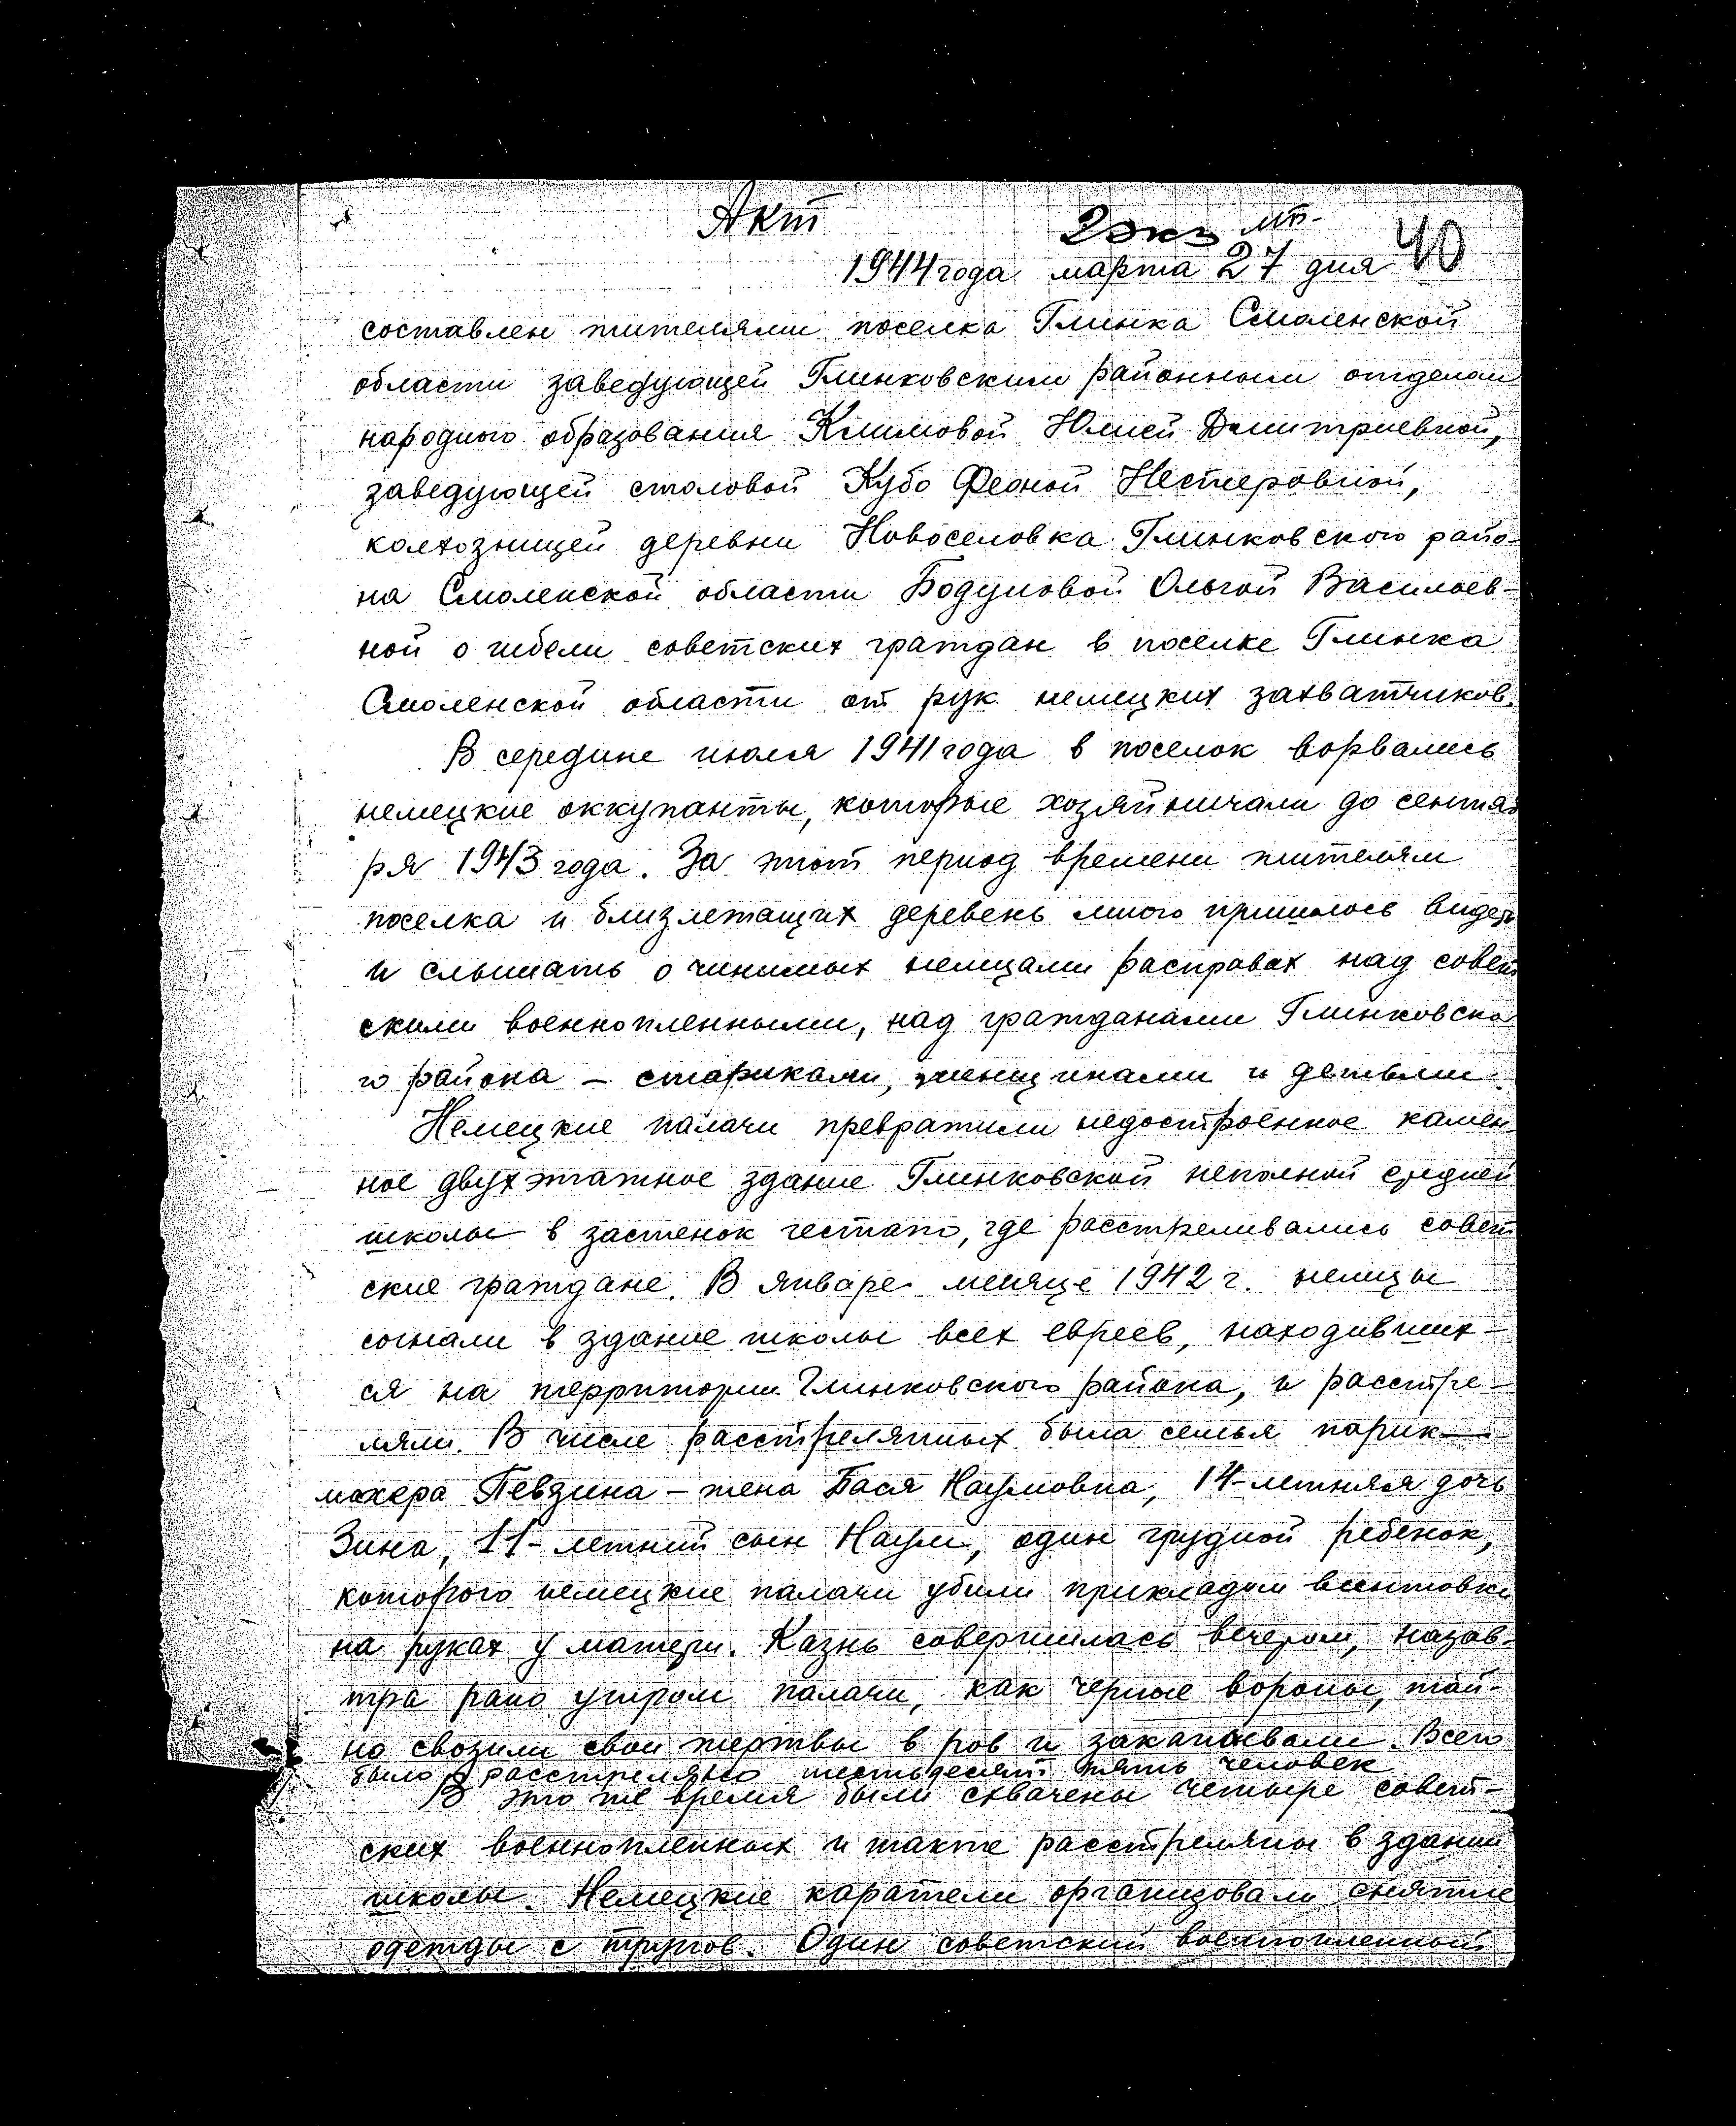 Акт
2 экз
40
1944 года марта 27 дня
составлен жителями поселка Глинка Смоленской
области заведующей Глинковским районным отделом
народного образования Климовой Юлией Дмитриевной,
заведующей столовой Кубо Феоной Нестеровной,
колхозницей деревни Новоселовка Глинковского райо-
на Смоленской области Бодуновой Ольгой Васильев-
ной о гибели советских граждан в поселке Глинка
Смоленской области от рук немецких захватчиков.
В середине июля 1941 года в поселок ворвались
немецкие оккупанты, которые хозяйничали до сентяб
ря 1943 года. За этот период времени жителям
поселка и близлежащих деревень много пришлось видеть
и слышать о чинимых немцами расправах над совет
скими военнопленными, над гражданами Глинковско
го района – стариками, женщинами и детьми.
Немецкие палачи превратили недостроенное камен
ное двухэтажное здание Глинковской неполной средней
школы в застенок гестапо, где расстреливались совет
ские граждане. В январе месяце 1942 г. немцы
согнали в здание школы всех евреев, находивших-
ся на территории Глинковского района, и расстре-
ляли. В числе расстрелянных была семья парик-
махера Певзина – жена Бася Наумовна, 14-летняя дочь
Зина, 11-летний сын Наум, один грудной ребенок,
которого немецкие палачи убили прикладом винтовки
на руках у матери. Казнь совершилась вечером, назав-
тра рано утром палачи, как черные вороны, тай-
но свозили свои жертвы в ров и закапывали. Всего
было расстреляно шестьдесят пять человек
В это же время были схвачены четыре совет-
ских военнопленных и также расстреляны в здании
школы. Немецкие каратели организовали снятие
одежды с трупов. Один советский военнопленный